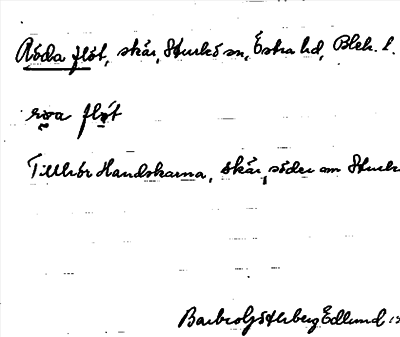 Röda flöt, skär, Sturkö sn, Östra hd, Blek. l.
röa flöt
Tillhör Handskarna, skär, söder om Sturk
Barbro Götherberg Edlund